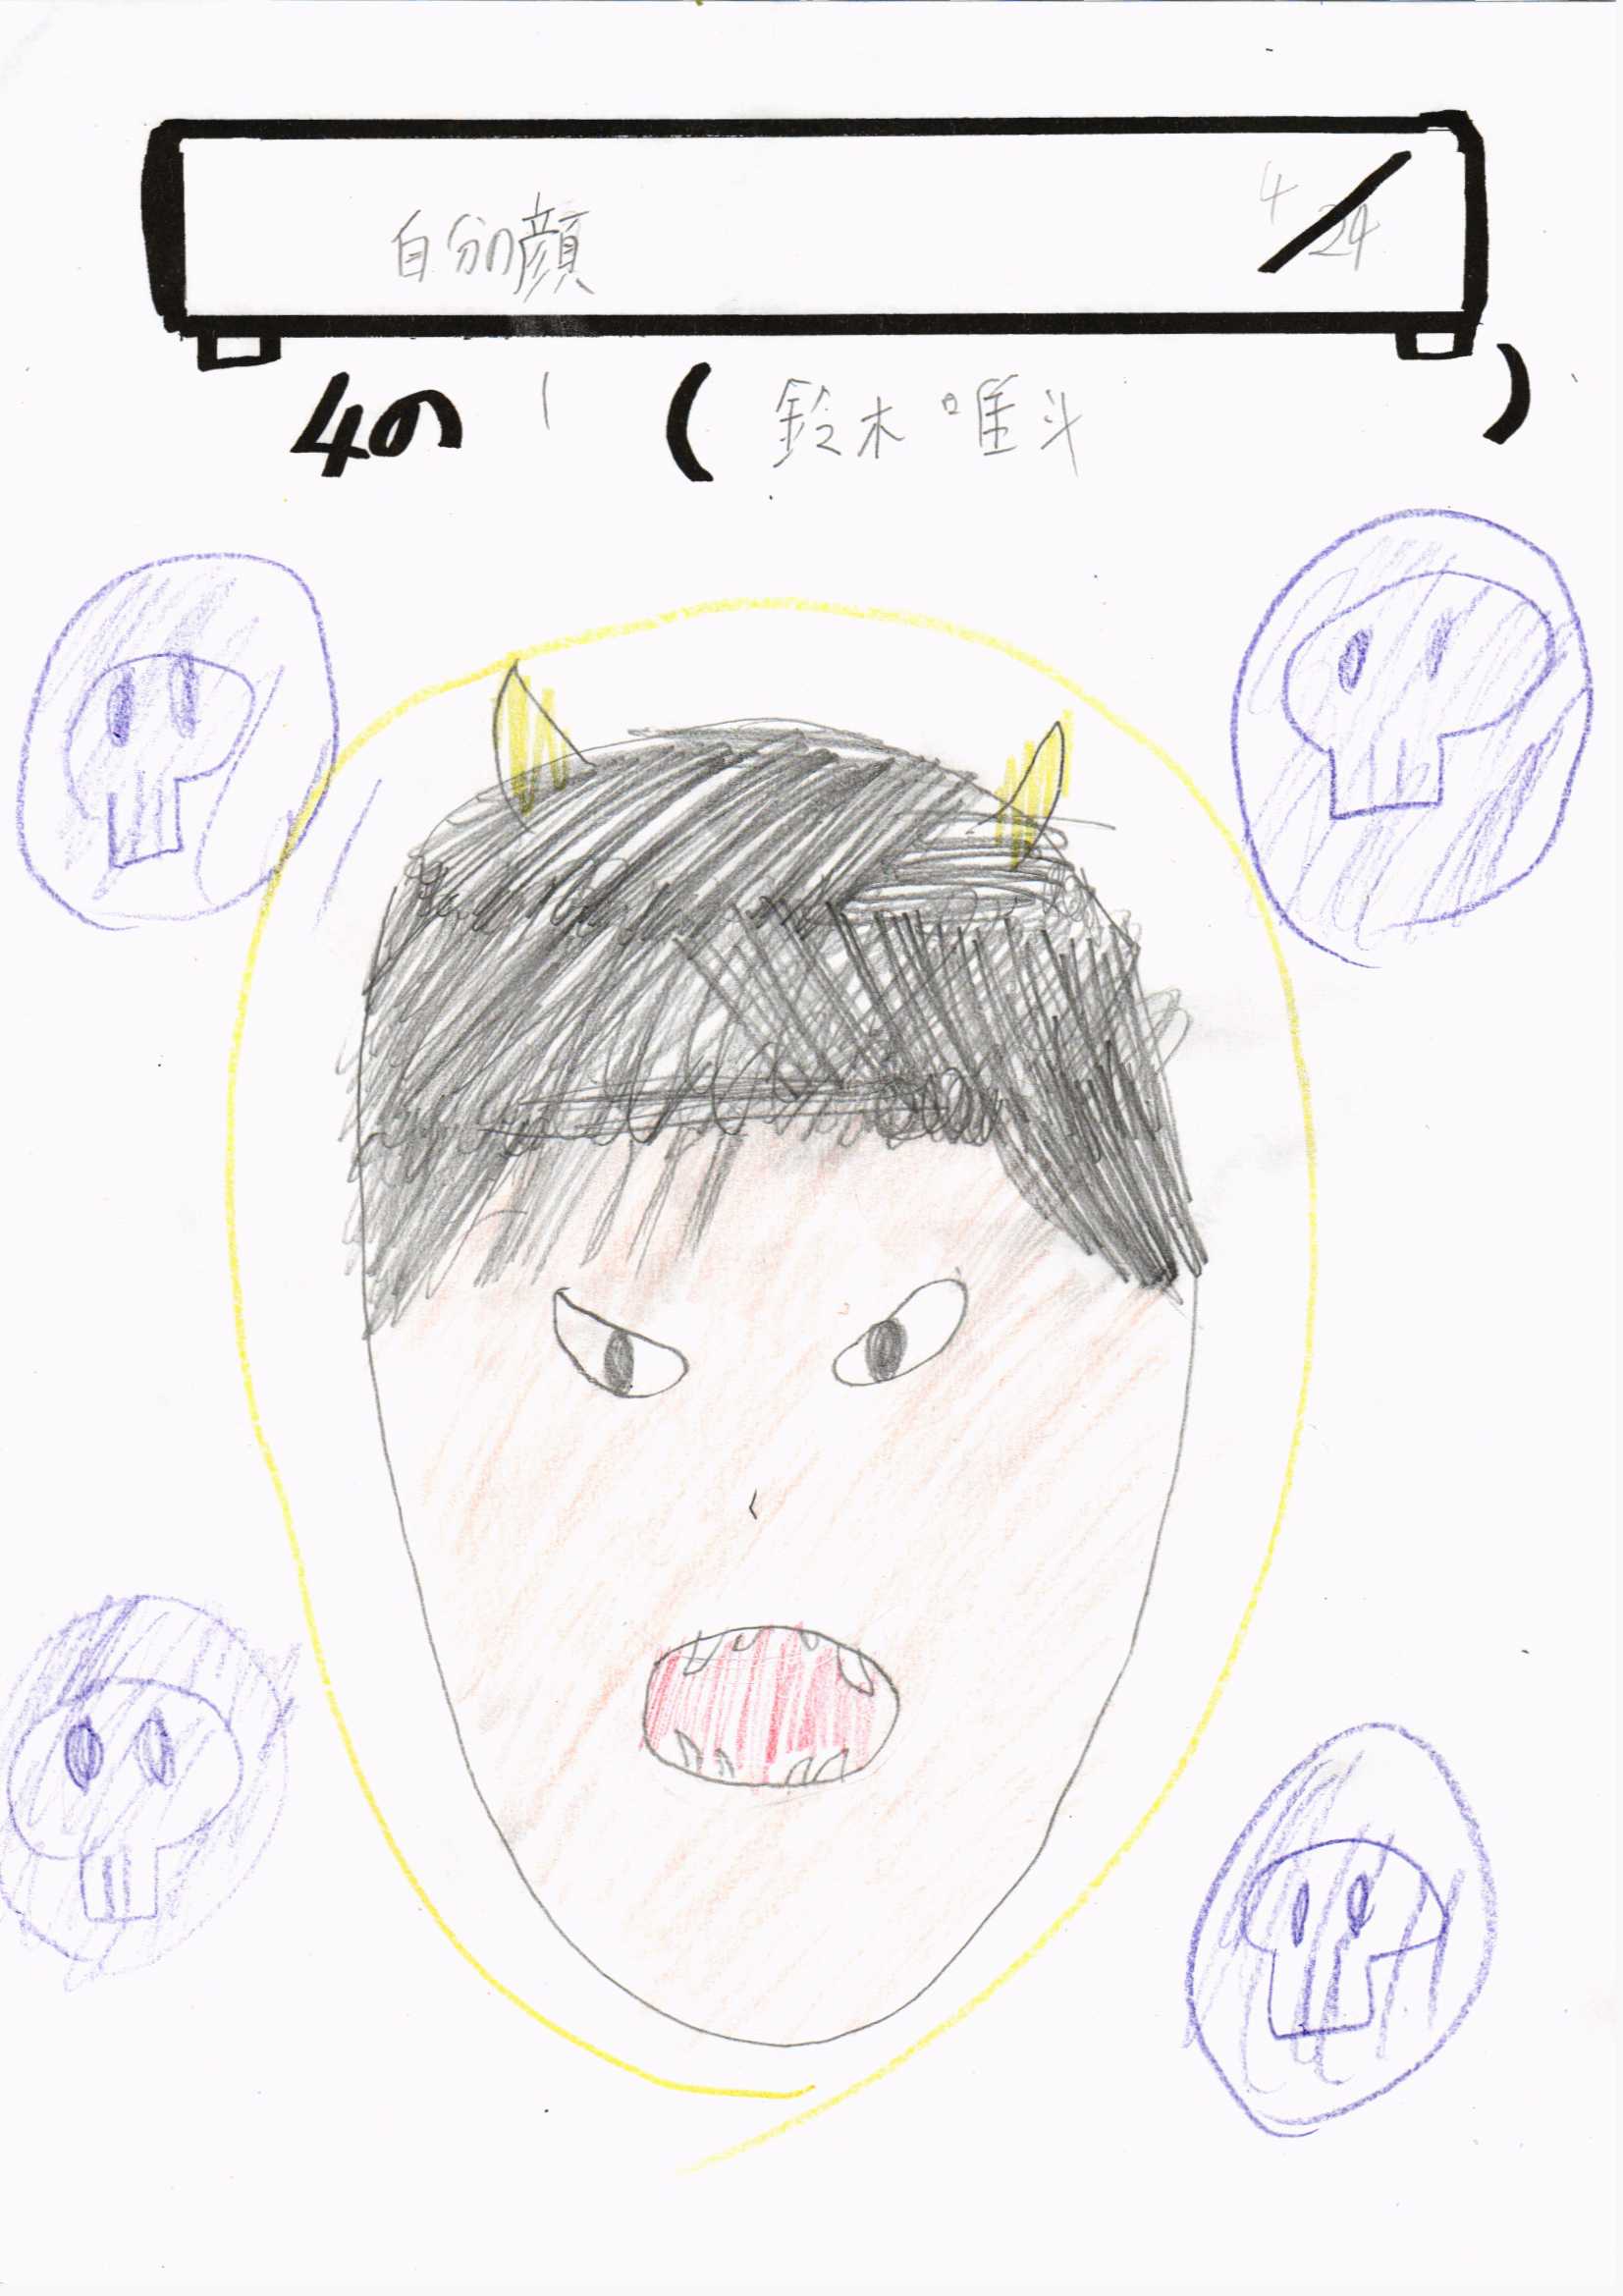 自分の顔 4/24
4の1 (鈴木唯斗)